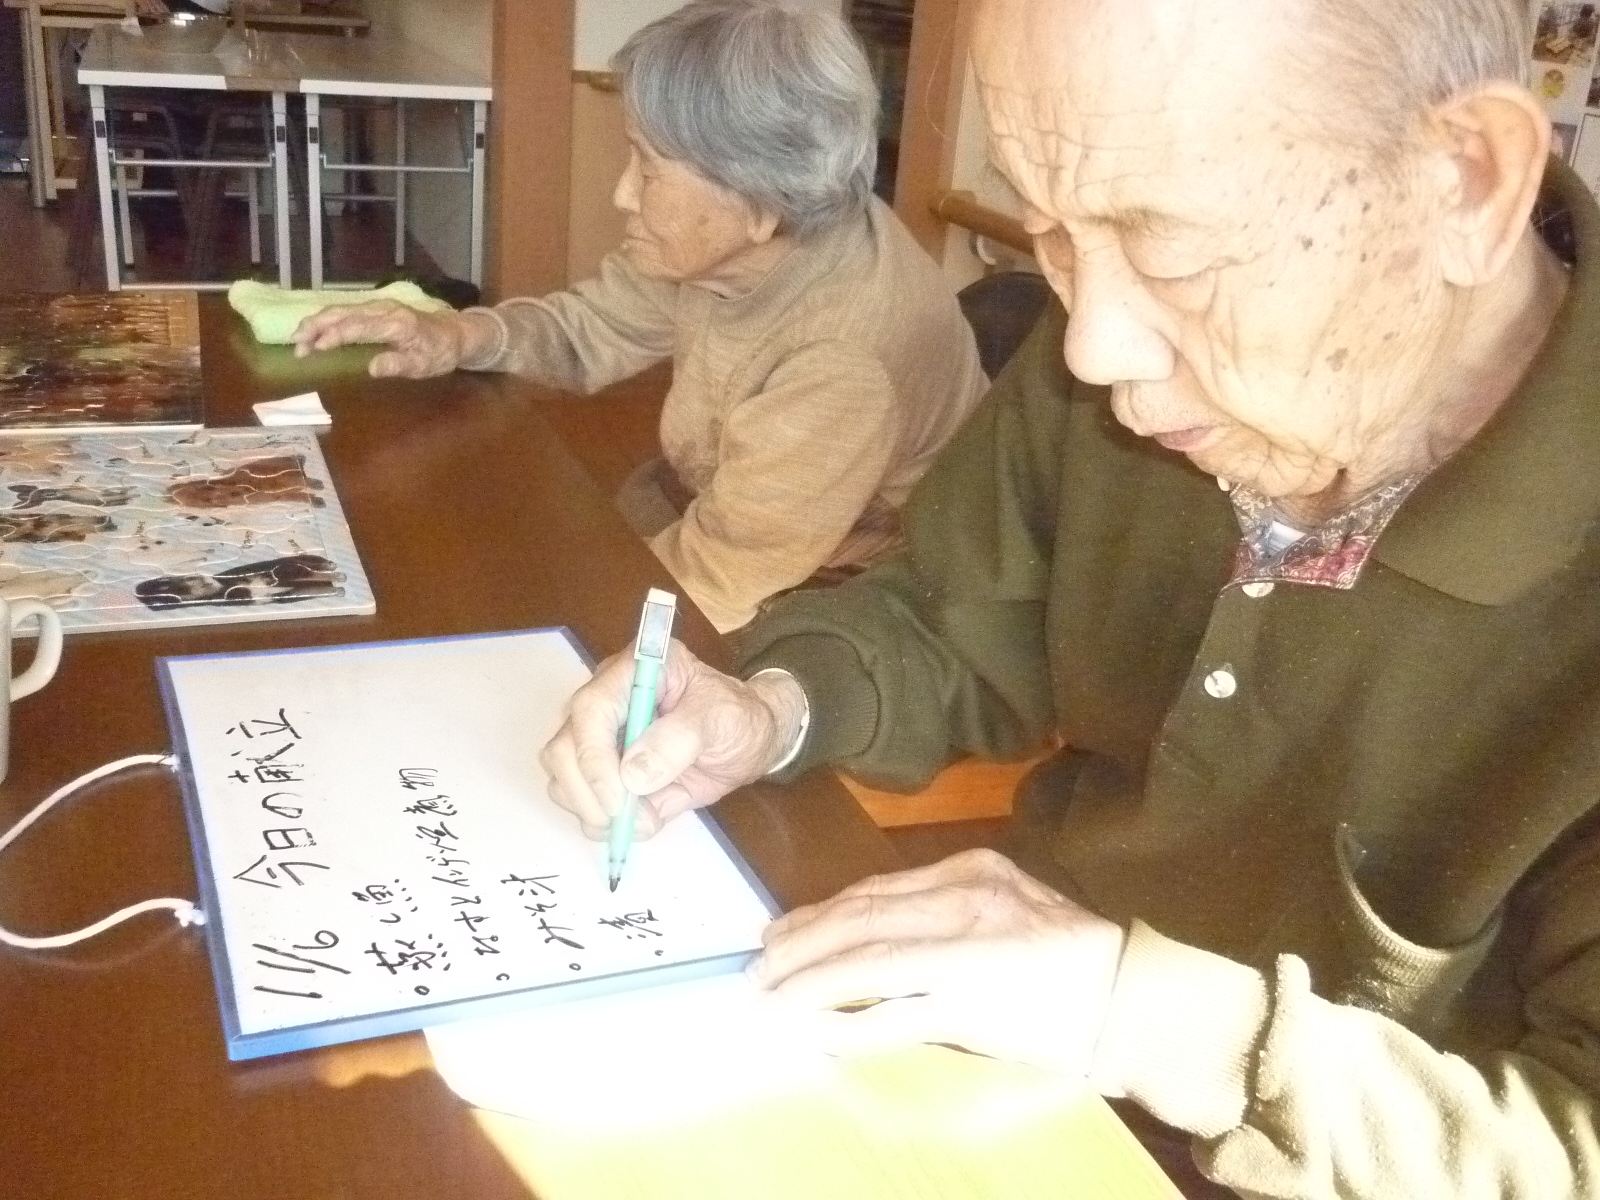 11/6 今日の献立
。蒸し魚
。なすとインゲン煮物
。みそ汁
。漬